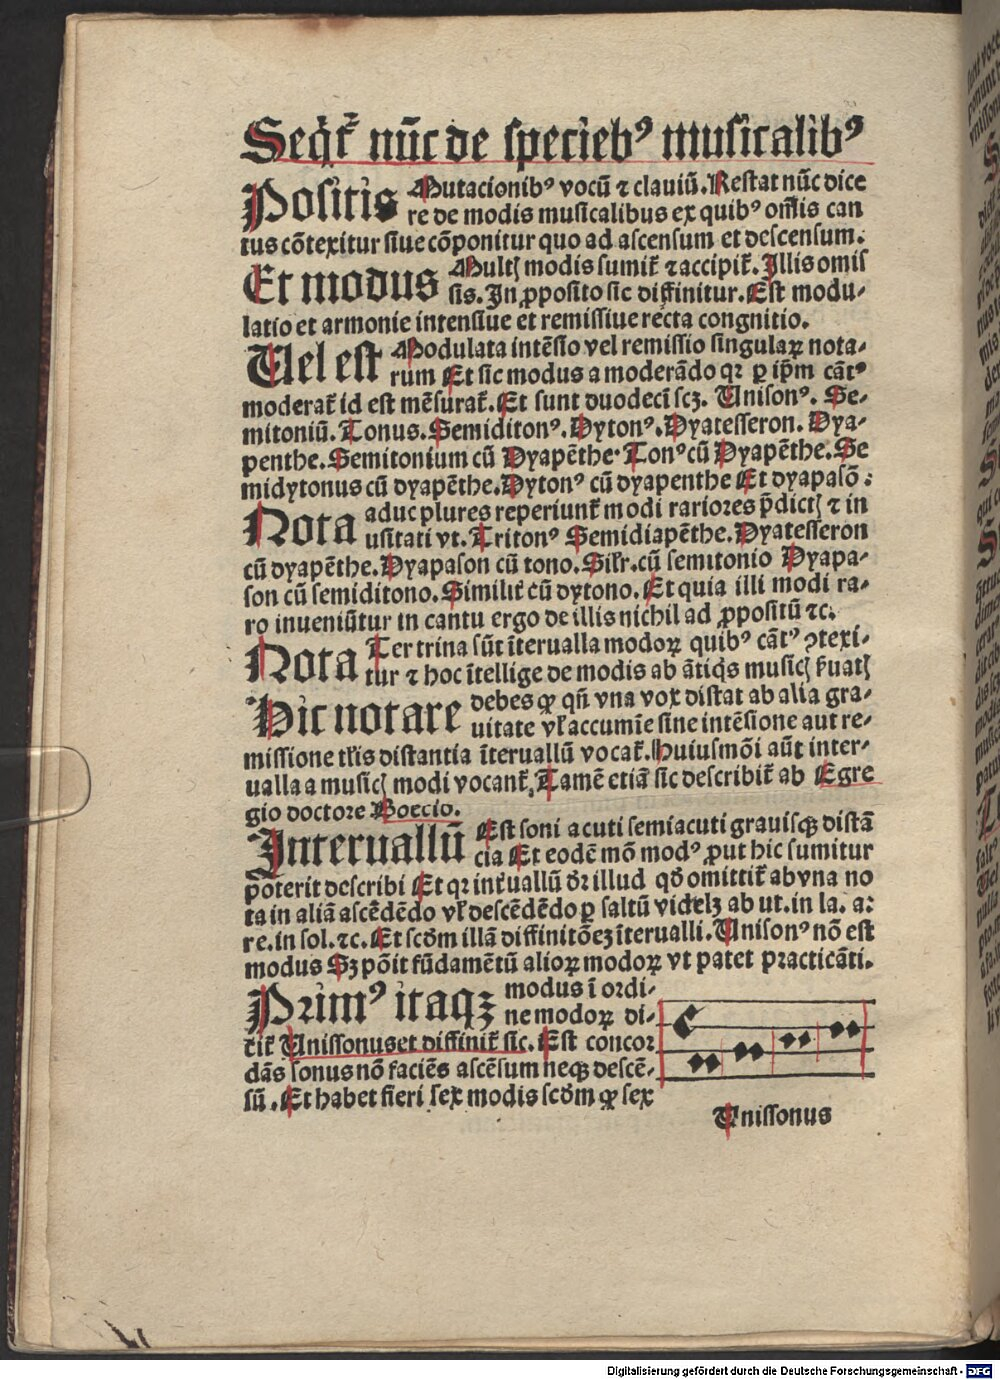 Seq̃r̃ nũc de ſpecieb⁹ muſicalib⁹
Poſitis Mutacionib⁹ vocũ ⁊ clauiũ. Reſtat nũc dice
re de modis muſicalibus ex quib⁹ om̃is can
tus cõtexitur ſiue cõponitur quo ad aſcenſum et deſcenſum.
Et modus Multꝭ modis ſumit᷑ ⁊accipit᷑. Illis omiſ
ſis. In ꝓpoſito ſic diffinitur. Eſt modu⸗
latio et armonie intenſiue et remiſſiue recta congnitio.
Uel eſt Modulata intẽſio vel remiſſio ſingulaꝝ nota⸗
rum Et ſic modus a moderãdo qꝛ ꝑ ip̃m cãt⁹
moderat᷑ id eſt mẽſurat᷑. Et ſunt duodeci ſcꝫ. Uniſon⁹. Se⸗
mitoniũ. Tonus. Semiditon⁹. Dyton⁹. Dyateſſeron. Dya⸗
penthe. Semitonium cũ Dyapẽthe· Ton⁹ cũ Dyapẽthe. Se
midytonus cũ dyapẽthe. Dyton⁹ cũ dyapenthe Et dyapaſõ :
Nota aduc plures reperiunt᷑ modi rariores p̃dictꝭ ⁊ in
uſitati vt. Triton⁹ Semidiapẽthe. Dyateſſeron
cũ dyapẽthe. Dyapaſon cũ tono. Sil̃r. cũ ſemitonio Dyapa⸗
ſon cũ ſemiditono. Similit᷑ cũ dytono. Et quia illi modi ra⸗
ro inueniũtur in cantu ergo de illis nichil ad ꝓpoſitũ ⁊c.
Nota Ter trina ſũt ĩterualla modoꝝ quib⁹ cãt⁹ ꝯtexi⸗
tur ⁊ hoc ĩtellige de modis ab ãtiq̃s muſicꝭ ẜuatꝭ
Hic notare debes ꝙ qñ vna vox diſtat ab alia gra⸗
uitate vl̃ accumĩe ſine intẽſione aut re⸗
miſſione tl̃is diſtantia ĩteruallũ vocat᷑. Huiuſmõi aũt inter⸗
ualla a muſicꝭ modi vocant᷑. Tamẽ etiã ſic deſcribit᷑ ab Egre
gio doctore Boecio.
Interuallũ Eſt ſoni acuti ſemiacuti grauiſqꝫ diſtã
cia Et eodẽ mõ mod⁹ ꝓut hic ſumitur
poterit deſcribi Et qꝛ int᷑uallũ dꝛ̃ illud qd̃ omittit᷑ ab vna no
ta in aliã aſcẽdẽdo vl̃ deſcẽdẽdo ꝑ ſaltũ videlꝫ ab ut. in la. a:
re. in ſol. ⁊c. Et ſcd̃m illã diffinitõeꝫ ĩterualli. Uniſon⁹ nõ eſt
modus Sꝫ põit fũdamẽtũ alioꝝ modoꝝ vt patet practicãti.
Prim⁹ itaqꝫ modus ĩ ordi⸗
ne modoꝝ di⸗
cit᷑ Uniſſonus et diffinit᷑ ſic. Eſt concor
dãs ſonus nõ faciẽs aſcẽſum neqꝫ deſcẽ⸗
ſũ. Et habet fieri ſex modis ſcd̃m ꝙ ſex
Uniſſonus
Digitalisierung gefördert durch die Deutsche Forschungsgemeinschaft - DFG